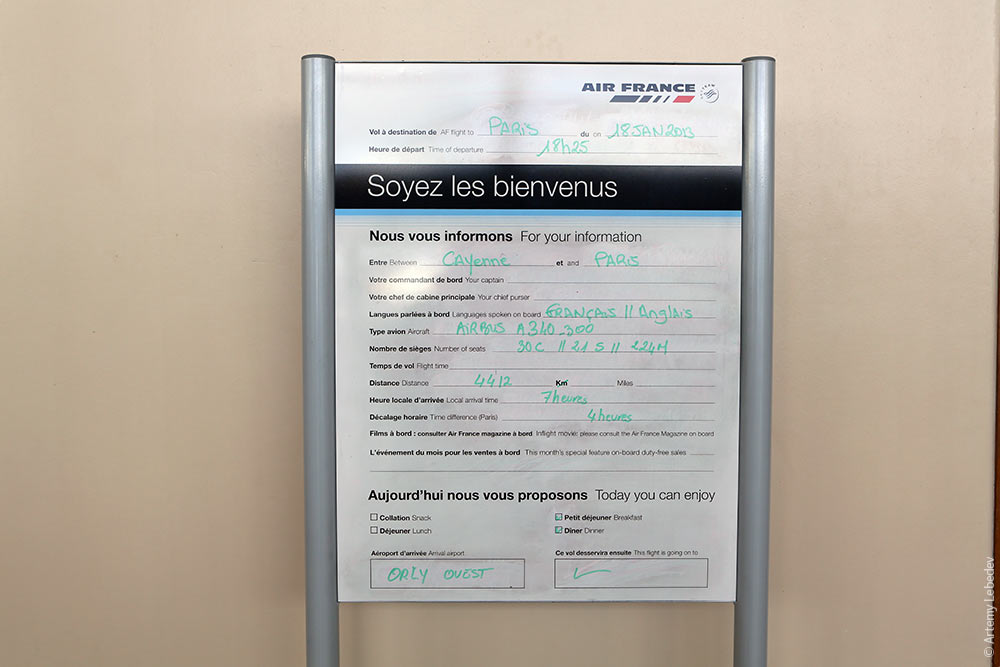 AIR FRANCE
Vol à destination de AF flight to PARIS du on 18 JAN 2013
Heure de départ Time of departure 18h25
Soyez les bienvenus
Nous vous informons For your information
Entre Between CAyenne et and PARIS
Votre commandant de bord Your captain
Votre chef de cabine principale Your chief purser
Langues parlées à bord Languages spoken on board FRANÇAIS // Anglais
Type avion Aircraft AIRBUS A340_300
Nombre de sièges Number of seats 30C // 21 S // 224M
Temps de vol Flight time
Distance Distance 4412 Km Miles
Heure locale d'arrivée Local arrival time 7heures
Décalage horaire Time difference (Paris) 4heures
Films à bord : consulter Air France magazine à bord Inflight movie: please consult the Air France Magazine on board
L'événement du mois pour les ventes à bord This month's special feature on-board duty-free sales
Aujourd'hui nous vous proposons Today you can enjoy
Collation Snack Petit déjeuner Breakfast
Déjeuner Lunch Dîner Dinner
Aéroport d'arrivée Arrival airport Ce vol desservira ensuite This flight is going on to
ORLY OUEST
© Artemy Lebedev